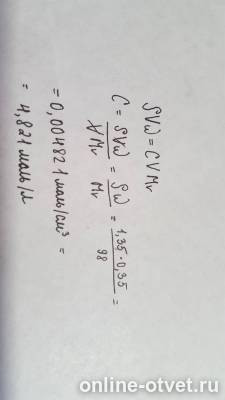 ρVω = CVMr
C = ρVω/VMr = ρω/Mr = 1,35·0,35/98 =
= 0,004821 моль/см³ =
= 4,821 моль/л
online-otvet.ru